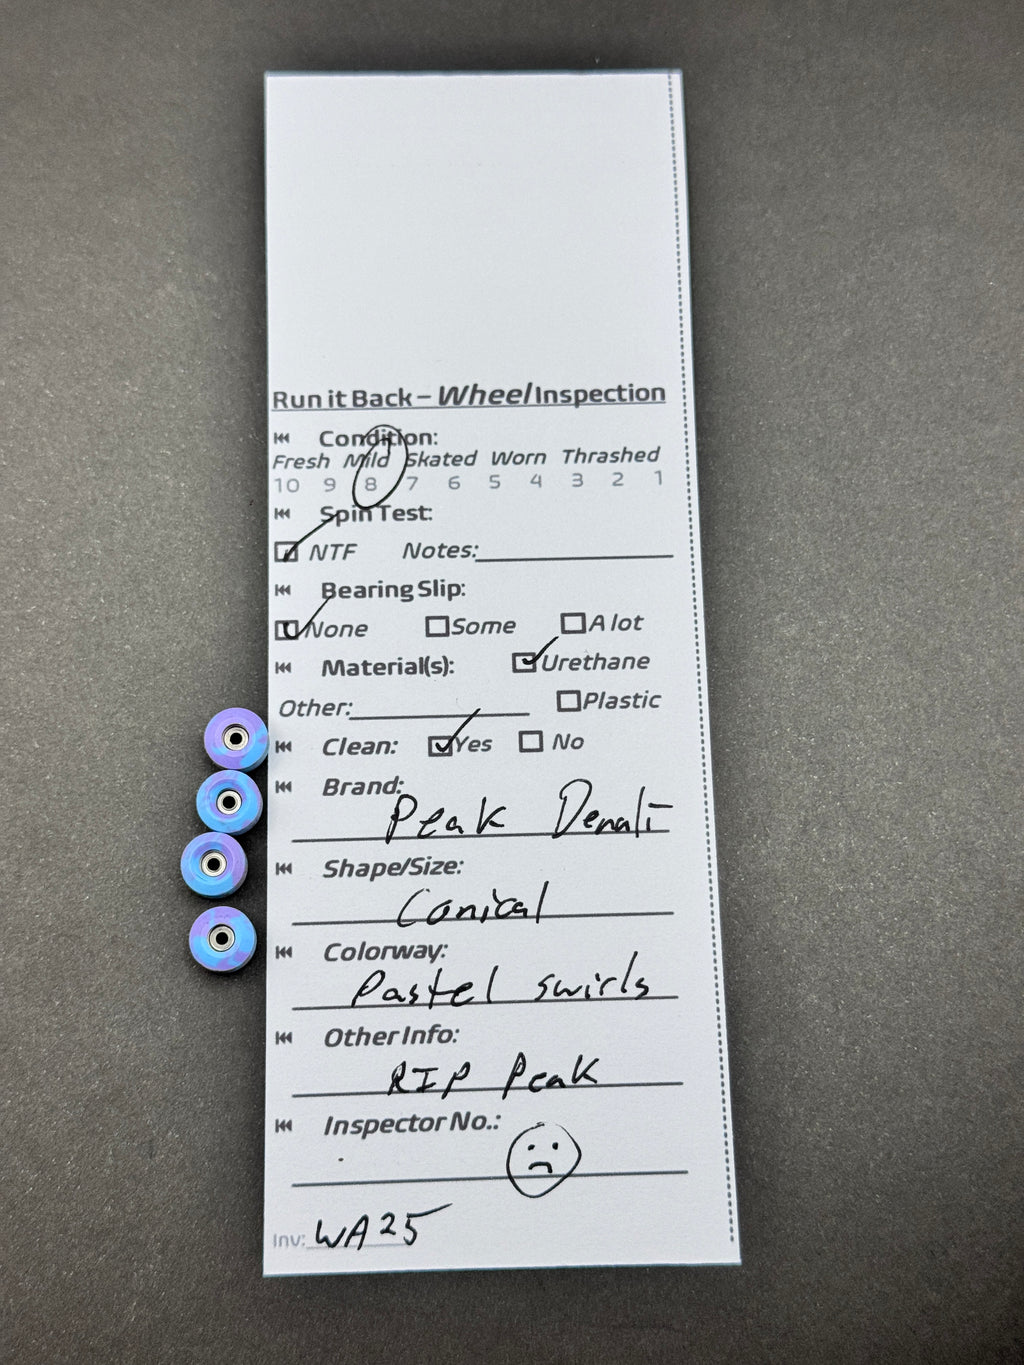 Run it Back – Wheel Inspection
Condition:
Fresh Mild Skated Worn Thrashed
10 9 8 7 6 5 4 3 2 1
Spin Test:
NTF Notes:
Bearing Slip:
None Some A lot
Material(s): Urethane
Other: Plastic
Clean: Yes No
Brand:
Peak Denali
Shape/Size:
Conical
Colorway:
Pastel swirls
Other Info:
RIP Peak
Inspector No.:
Inv: WA25